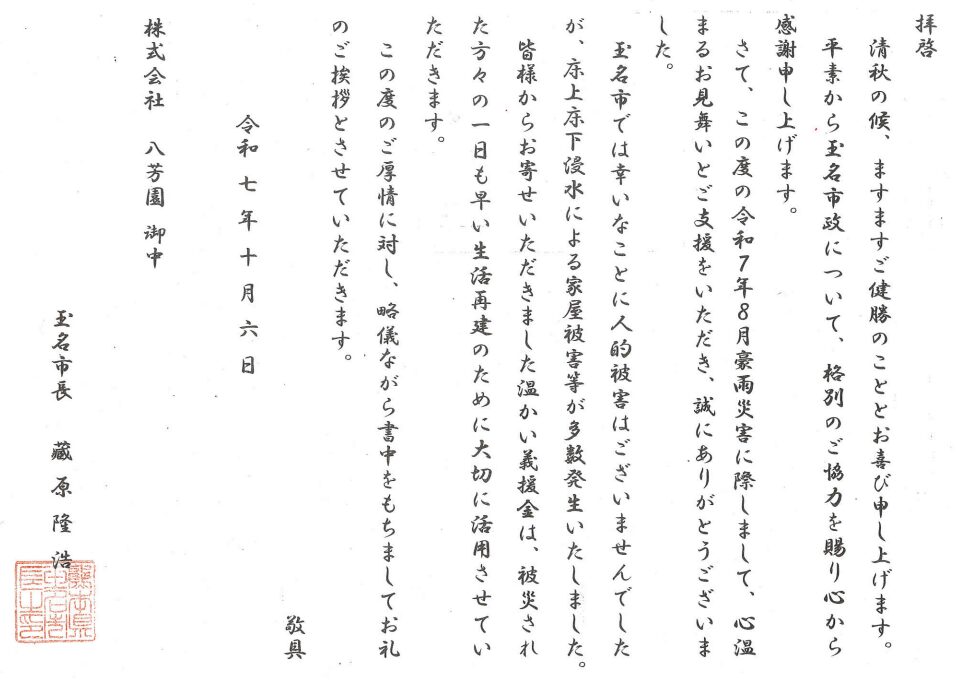 拝啓
清秋の候、ますますご健勝のこととお喜び申し上げます。
平素から玉名市政について、格別のご協力を賜り心から
感謝申し上げます。
さて、この度の令和7年8月豪雨災害に際しまして、心温
まるお見舞いとご支援をいただき、誠にありがとうございま
した。
玉名市では幸いなことに人的被害はございませんでした
が、床上床下浸水による家屋被害等が多数発生いたしました。
皆様からお寄せいただきました温かい義援金は、被災され
た方々の一日も早い生活再建のために大切に活用させてい
ただきます。
この度のご厚情に対し、略儀ながら書中をもちましてお礼
のご挨拶とさせていただきます。
敬具
令和七年十月六日
株式会社 八芳園 御中
玉名市長 藏原隆浩
熊本県
玉名市
長之印